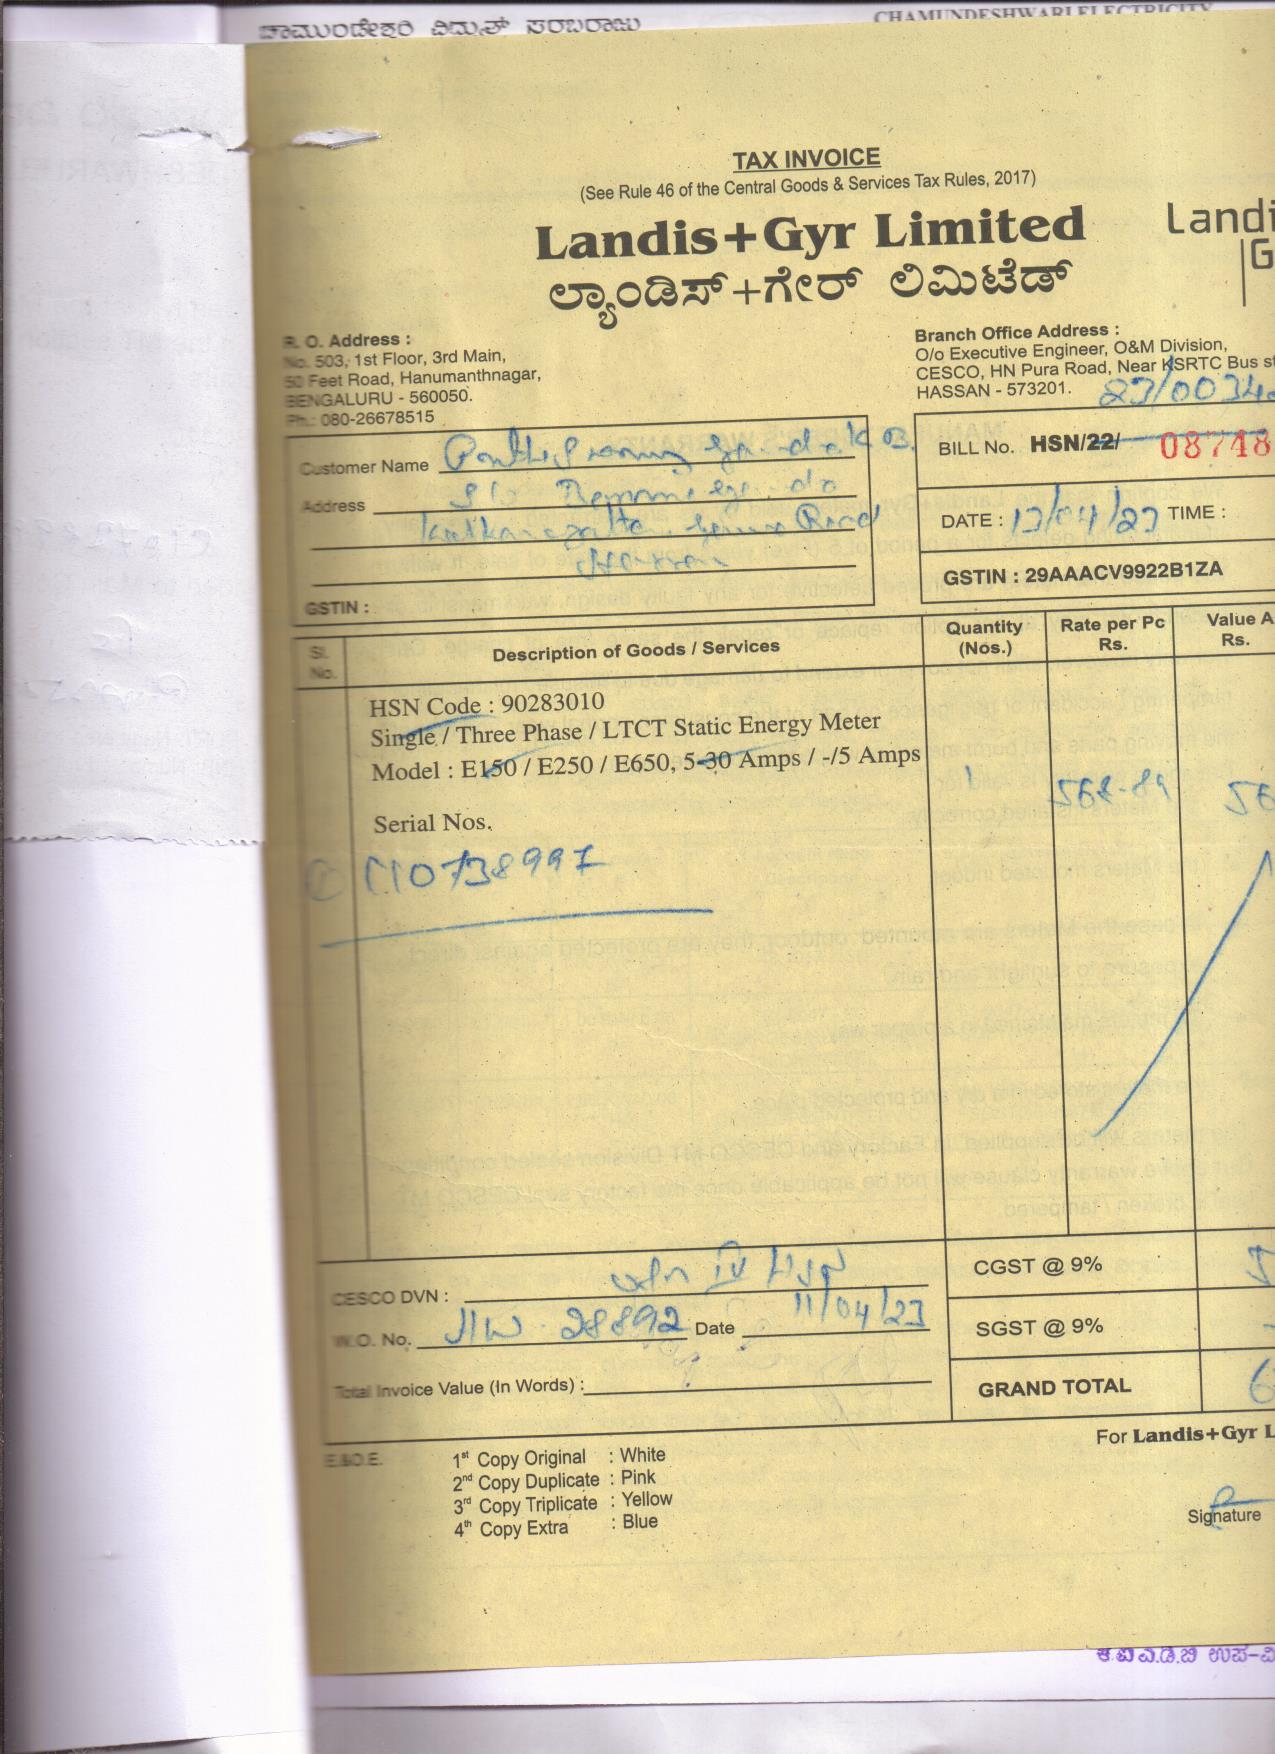 ಚಾಮುಂಡೇಶ್ವರಿ ವಿದ್ಯುತ್ ಸರಬರಾಜು
CHAMUNDESHWARI ELECTRICITY
TAX INVOICE
(See Rule 46 of the Central Goods & Services Tax Rules, 2017)
Landis+Gyr Limited
Landi
G
ಲ್ಯಾಂಡಿಸ್+ಗೇರ್ ಲಿಮಿಟೆಡ್
R. O. Address :
No. 503, 1st Floor, 3rd Main,
50 Feet Road, Hanumanthnagar,
BENGALURU - 560050.
Ph.: 080-26678515
Branch Office Address :
O/o Executive Engineer, O&M Division,
CESCO, HN Pura Road, Near KSRTC Bus st
HASSAN - 573201.
23/0034
Customer Name K B.
Address S/o
Road
Hassan
GSTIN :
BILL No. HSN/22/ 08748
DATE : 13/04/23 TIME :
GSTIN : 29AAACV9922B1ZA
Sl. No. Description of Goods / Services Quantity (Nos.) Rate per Pc Rs. Value A Rs.
HSN Code : 90283010
Single / Three Phase / LTCT Static Energy Meter
Model : E150 / E250 / E650, 5-30 Amps / -/5 Amps 1 568-89 56
Serial Nos.
① C10738997
CESCO DVN : HSN
W.O. No. 28892 Date 11/04/23
Total Invoice Value (In Words) :
CGST @ 9% 5
SGST @ 9%
GRAND TOTAL 6
E.&O.E.
1st Copy Original : White
2nd Copy Duplicate : Pink
3rd Copy Triplicate : Yellow
4th Copy Extra : Blue
For Landis+Gyr L
Signature
ಕೆ.ಐ.ಎ.ಡಿ.ಬಿ ಉಪ-ವಿ